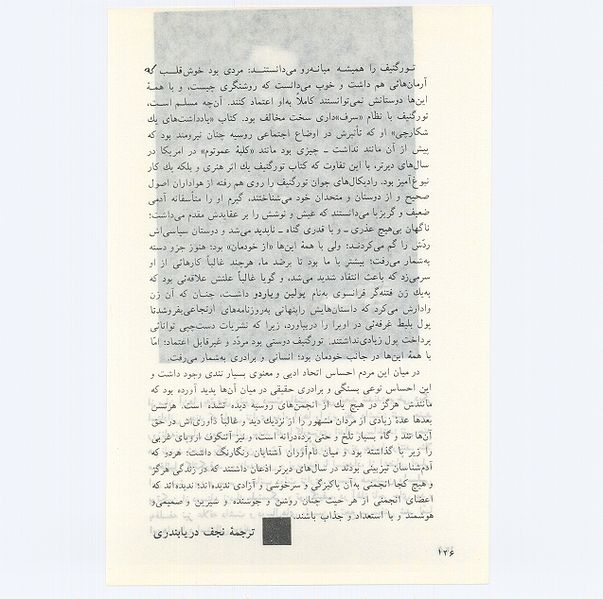 تورگنیف را همیشه میانه‌رو می‌دانستند: مردی بود خوش‌قلب که
آرمان‌هائی هم داشت و خوب می‌دانست که روشنگری چیست، و با همهٔ
این‌ها دوستانش نمی‌توانستند کاملاً به‌او اعتماد کنند. آن‌چه مسلم است،
تورگنیف با نظام «سرف»‌داری سخت مخالف بود. کتاب «یادداشت‌های یك
شکارچی» او که تأثیرش در اوضاع اجتماعی روسیه چنان نیرومند بود که
پیش از آن مانند نداشت ـ چیزی بود مانند «کلبهٔ عموتوم» در امریکا در
سال‌های دیرتر، با این تفاوت که کتاب تورگنیف یك اثر هنری و بلکه یك کار
نبوغ‌آمیز بود. رادیکال‌های جوان تورگنیف را روی هم رفته از هواداران اصول
صحیح و از دوستان و متحدان خود می‌شناختند، گیرم او را متأسفانه آدمی
ضعیف و گریزپا می‌دانستند که عیش و نوشش را بر عقایدش مقدم می‌داشت؛
ناگهان بی‌هیچ عذری ـ و با قدری گناه ـ ناپدید می‌شد و دوستان سیاسی‌اش
ردّش را گم می‌کردند؛ ولی با همهٔ این‌ها «از خودمان» بود؛ هنوز جزو دسته
به‌شمار می‌رفت؛ بیشتر با ما بود تا برضد ما، هرچند غالباً کارهائی از او
سرمی‌زد که باعث انتقاد شدید می‌شد، و گویا غالباً علتش علاقه‌ئی بود که
به‌یك زن فتنه‌گر فرانسوی به‌نام پولین ویاردو داشت، چنان که آن زن
وادارش می‌کرد که داستان‌هایش را پنهانی به‌روزنامه‌های ارتجاعی بفروشد تا
پول بلیط غرفه‌ئی در اوپرا را دربیاورد، زیرا که نشریات دست‌چپی توانائی
پرداخت پول زیادی نداشتند. تورگنیف دوستی بود مردّد و غیرقابل اعتماد؛ امّا
با همهٔ این‌ها در جانب خودمان بود؛ انسانی و برادری به‌شمار می‌رفت.
در میان این مردم احساس اتحاد ادبی و معنوی بسیار تندی وجود داشت و
این احساس نوعی بستگی و برادری حقیقی در میان آن‌ها پدید آورده بود که
مانندش هرگز در هیچ یك از انجمن‌های روسیه دیده نشده است. هرتسن
بعدها عده زیادی از مردان مشهور را از نزدیك دید و غالباً داوری‌اش در حق
آن‌ها تند و گاه بسیار تلخ و حتی پرده‌درانه است، و نیز آننکوف اروپای غربی
را زیر پا گذاشته بود و میان نام‌آوران آشنایان رنگارنگ داشت؛ هردو که
آدم‌شناسان تیزبینی بودند در سال‌های دیرتر اذعان داشتند که در زندگی هرگز
و هیچ کجا انجمنی به‌آن پاکیزگی و سرخوشی و آزادی ندیده‌اند؛ ندیده‌اند که
اعضای انجمنی از هر حیث چنان روشن و جوشنده و شیرین و صمیمی و
هوشمند و با استعداد و جذاب باشند.
ترجمهٔ نجف دریابندری
۱۲۶